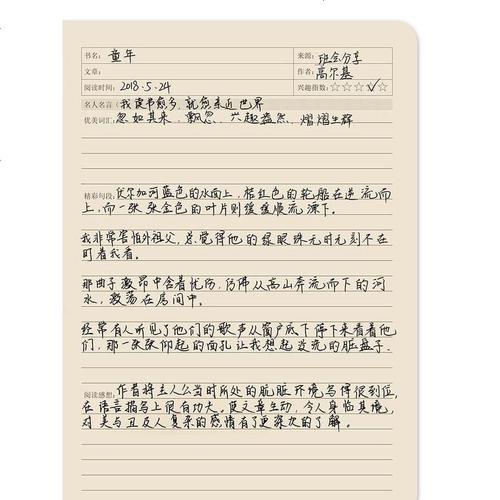 书名: 童年
来源: 班会分享
文章:
作者: 高尔基
阅读时间: 2018.5.24
兴趣指数: ☆☆☆☆☆
名人名言: 我读书愈多, 就愈亲近世界
优美词汇: 忽如其来、飘忽、兴趣盎然、熠熠生辉
精彩句段: 伏尔加河蓝色的水面上, 桔红色的轮船在逆流而
上, 而一张张金色的叶片则缓缓顺流漂下。
我非常害怕外祖父, 总觉得他的绿眼珠无时无刻不在
盯着我看。
那曲子激昂中含着忧伤, 仿佛从高山奔流而下的河
水, 激荡在房间中。
经常有人听见了他们的歌声从窗户底下停下来看着他
们, 那一张张仰起的面孔让我想起没洗的脏盘子.
阅读感想: 作者将主人公当时所处的肮脏环境写得很到位,
在语言描写上很有功夫。使文章生动, 令人身临其境,
对美与丑及人复杂的感情有了更深次的了解。